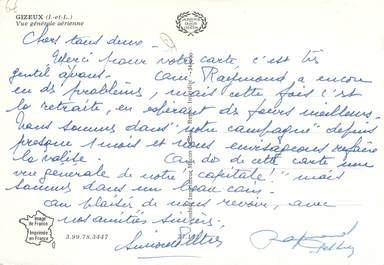 GIZEUX (I.-et-L.)
Vue générale aérienne
Chers tous deux -
Merci pour votre carte, c'est très
gentil à vous. - Raymond a encore
eu des problèmes, mais cette fois c'est
la retraite, en espérant des jours meilleurs.
Nous sommes dans "notre campagne" depuis
presque 1 mois et nous envisageons refaire
la valise. dos de cette carte une
vue generale de notre "capitale" ! mais
sommes dans un beau coin.
au plaisir de vous revoir, avec
nos amitiés sincères.
Simone
Image
de France
Imprimée
en France
3.99.78.3447